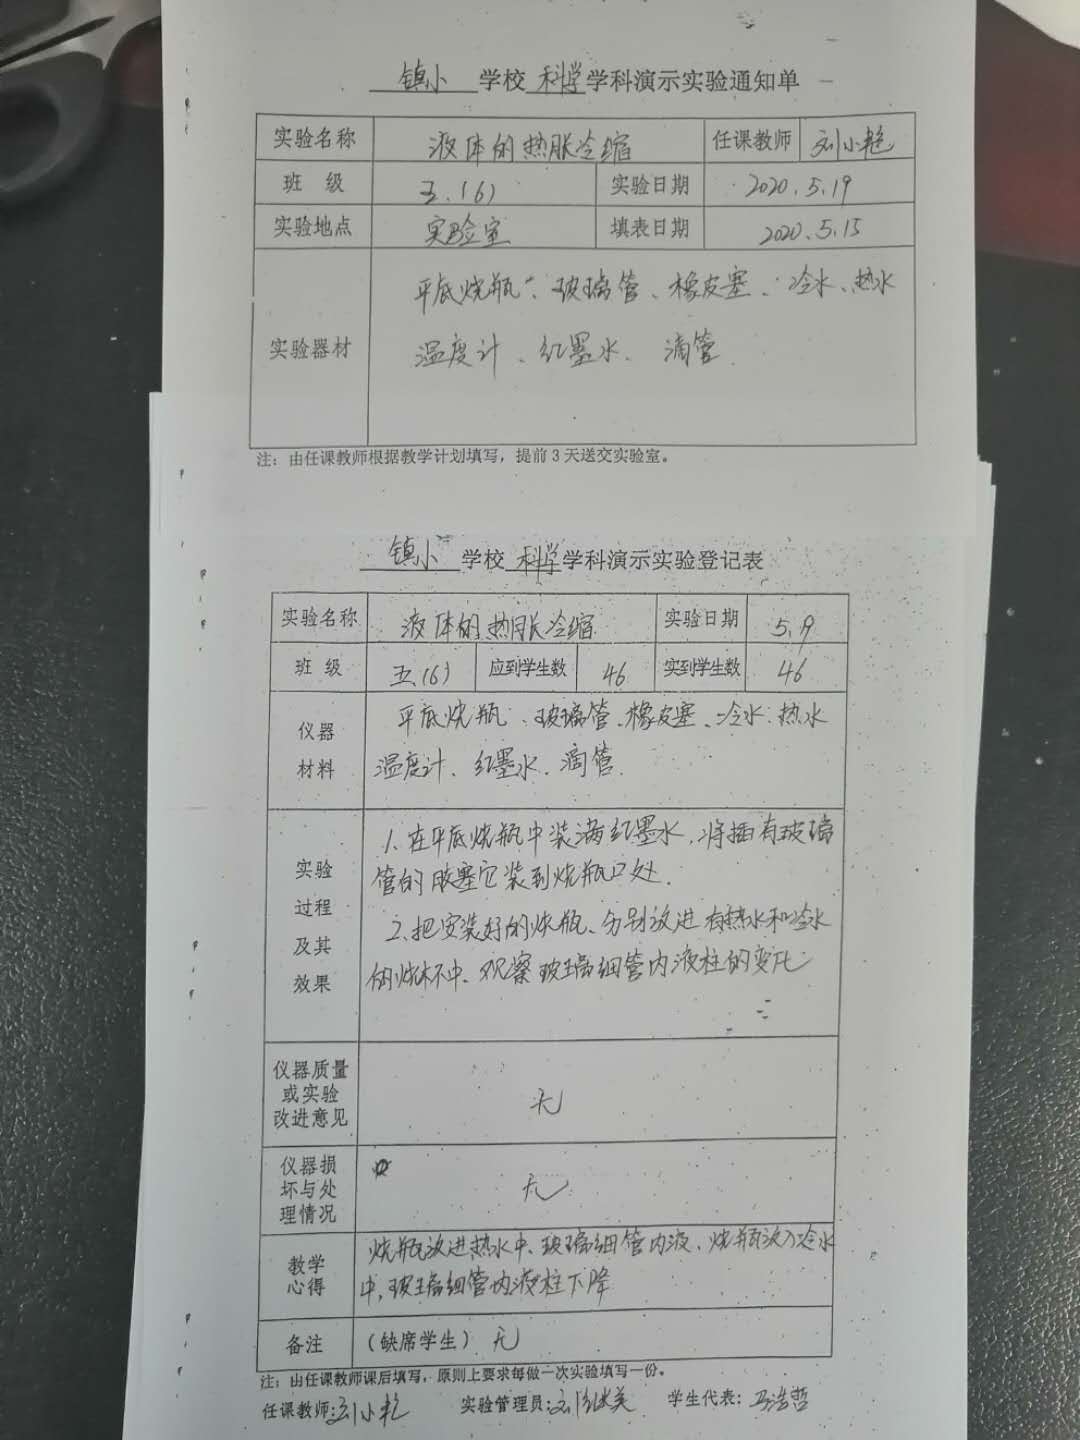 镇小 学校 科学 学科演示实验通知单
实验名称 液体的热胀冷缩 任课教师 刘小艳
班 级 五.(6) 实验日期 2020.5.19
实验地点 实验室 填表日期 2020.5.15
平底烧瓶、玻璃管、橡皮塞、冷水、热水
实验器材 温度计、红墨水、滴管
注：由任课教师根据教学计划填写，提前3天送交实验室。
镇小 学校 科学 学科演示实验登记表
实验名称 液体的热胀冷缩 实验日期 5.19
班 级 五.(6) 应到学生数 46 实到学生数 46
仪器 平底烧瓶、玻璃管、橡皮塞、冷水、热水
材料 温度计、红墨水、滴管
1.在平底烧瓶中装满红墨水，将插有玻璃
实验 管的胶塞它装到烧瓶口处.
过程 2.把安装好的烧瓶、分别放进有热水和冷水
及其 的烧杯中、观察玻璃细管内液柱的变化
效果
仪器质量
或实验
改进意见 无
仪器损
坏与处 无
理情况
教学 烧瓶放进热水中、玻璃细管内液、烧瓶放入冷水
心得 中，玻璃细管内液柱下降
备注 （缺席学生） 无
注：由任课教师课后填写，原则上要求每做一次实验填写一份。
任课教师:刘小艳 实验管理员: 学生代表: